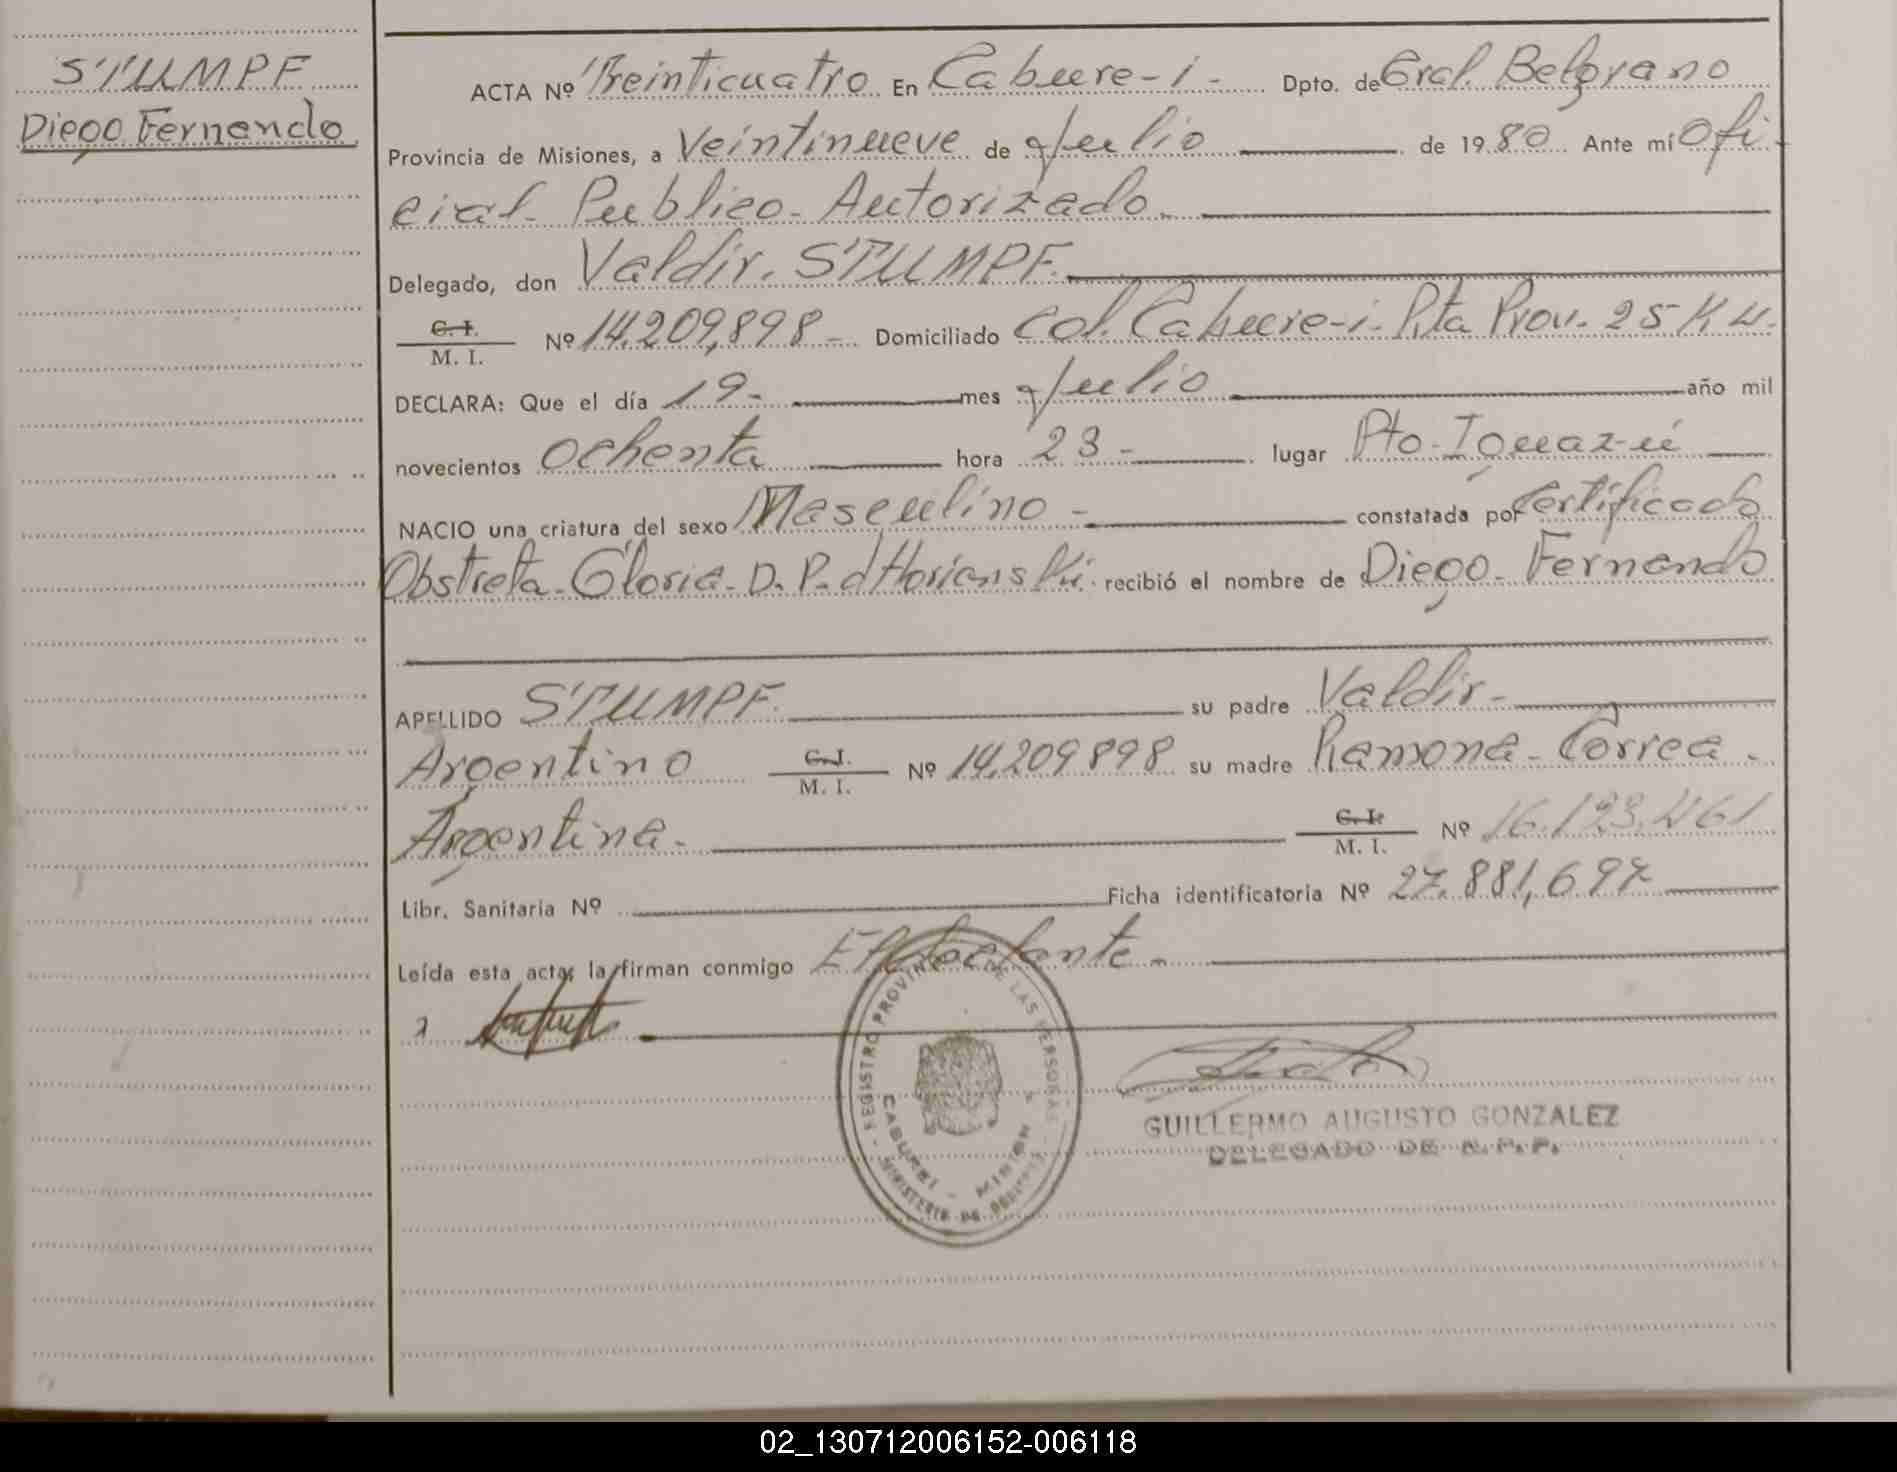 STUMPF
Diego Fernando
ACTA Nº Treinticuatro En Cabure-i- Dpto. de Gral. Belgrano
Provincia de Misiones, a Veintinueve de Julio de 1980 Ante mí Ofi
cial Publico Autorizado
Delegado, don Valdir. STUMPF.
C. I.
M. I. Nº 14.209,898- Domiciliado Col. Cabure-i- Rta Prov. 25 K
DECLARA: Que el día 19- mes Julio año mil
novecientos ochenta hora 23- lugar Pto-Iguaz-ú
NACIO una criatura del sexo Masculino- constatada por Certificado
Obstreta-Gloria-D.P.d recibió el nombre de Diego-Fernando
APELLIDO STUMPF. su padre Valdir-
Argentino C. I. M. I. Nº 14.209898 su madre Ramona-Correa.
Argentina- C. I. M. I. Nº 16.123.461
Libr. Sanitaria Nº Ficha identificatoria Nº 27.881,697
Leída esta acta, la firman conmigo El
REGISTRO PROVINCIAL DE LAS PERSONAS
CABUREI - MISION
MINISTERIO DE
GUILLERMO AUGUSTO GONZALEZ
DELEGADO DE R.P.P.
02_130712006152-006118